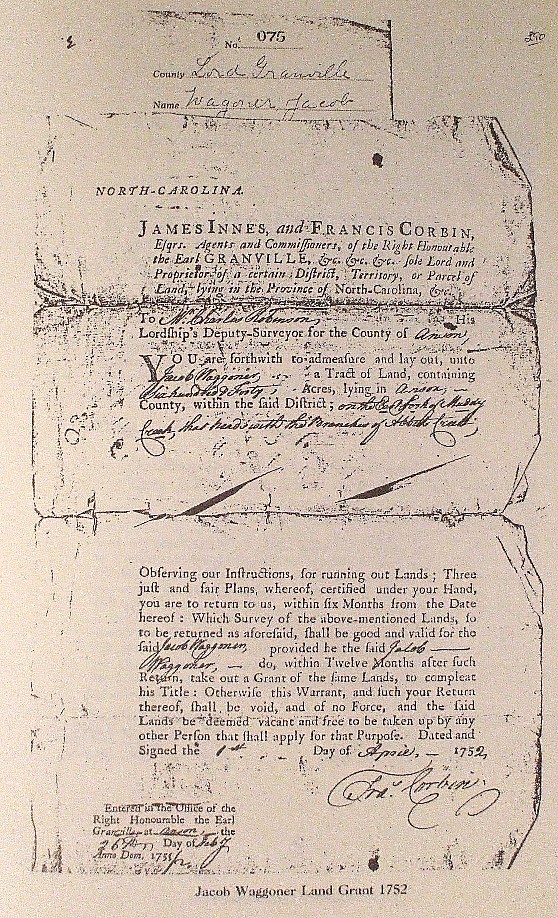 No. 075
250
County Lord Granville
Name Wagoner Jacob
NORTH-CAROLINA.
JAMES INNES, and FRANCIS CORBIN,
Esqrs. Agents and Commissioners, of the Right Honourable
the Earl GRANVILLE, &c. &c. &c. sole Lord and
Proprietor of a certain District, Territory, or Parcel of
Land, lying in the Province of North-Carolina, &c.
To Mr. Charles Robinson, His
Lordship's Deputy-Surveyor for the County of Anson,
YOU are forthwith to admeasure and lay out, unto
Jacob Waggoner, a Tract of Land, containing
Six hundred Forty, Acres, lying in Anson,
County, within the said District; on the East fork of Muddy
Creek, that heads with the Branches of Abbots Creek,
Observing our Instructions, for running out Lands; Three
just and fair Plans, whereof, certified under your Hand,
you are to return to us, within six Months from the Date
hereof: Which Survey of the above-mentioned Lands, so
to be returned as aforesaid, shall be good and valid for the
said Jacob Waggoner, provided he the said Jacob —
Waggoner, — do, within Twelve Months after such
Return, take out a Grant of the same Lands, to compleat
his Title: Otherwise this Warrant, and such your Return
thereof, shall be void, and of no Force, and the said
Lands be deemed vacant and free to be taken up by any
other Person that shall apply for that Purpose. Dated and
Signed the 1st Day of April — 1752
Fras Corbin
Entered in the Office of the
Right Honourable the Earl
Granville, at Anson, the
26th Day of Feby
Anno Dom, 175
Jacob Waggoner Land Grant 1752